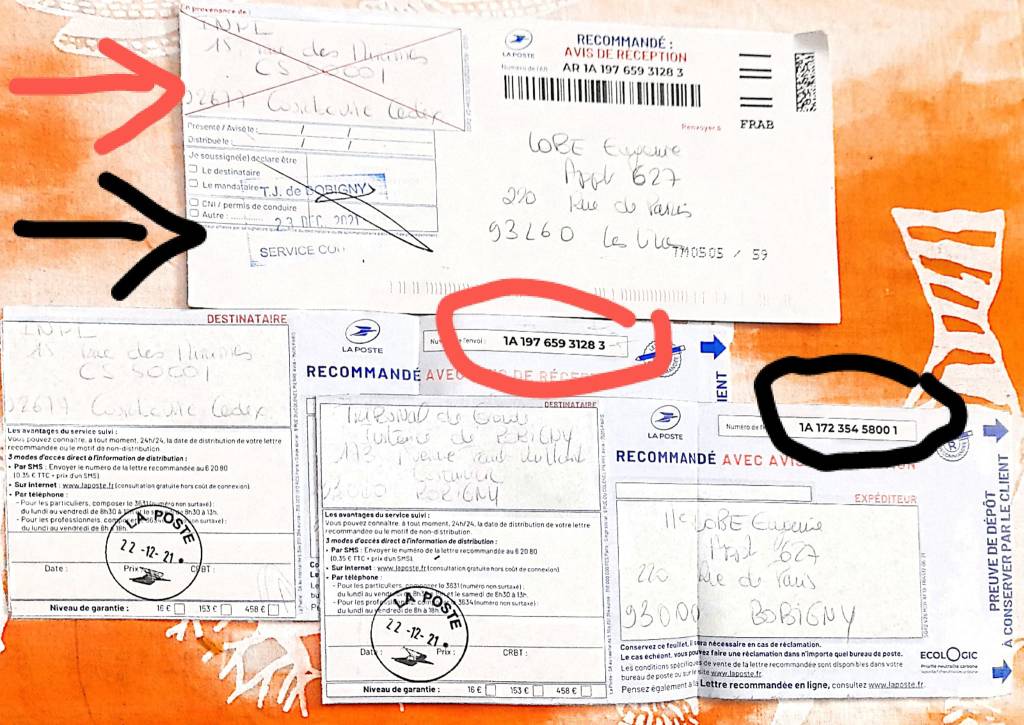 En provenance de :
INPI
15, rue des Minimes
CS 50001
92677 Courbevoie Cedex
Présenté / Avisé le : / /
Distribué le : / /
Je soussigné(e) déclare être
Le destinataire
Le mandataire
CNI / permis de conduire
Autre :
T.J. de BOBIGNY
23 DEC. 2021
SERVICE COU
LA POSTE
RECOMMANDÉ :
AVIS DE RÉCEPTION
Numéro de l'AR : AR 1A 197 659 3128 3
Renvoyer à
FRAB
LOBE Eugenie
Appt 627
220 Rue de Paris
93260 Les Lilas
TM0505 / 59
DESTINATAIRE
INPI
15 rue des Minimes
CS 50001
92677 Courbevoie Cedex
LA POSTE
Numéro de l'envoi : 1A 197 659 3128 3
RECOMMANDÉ AVEC AVIS DE RÉCEPTION
Les avantages du service suivi :
Vous pouvez connaître, à tout moment, 24h/24, la date de distribution de votre lettre
recommandée ou le motif de non-distribution.
3 modes d'accès direct à l'information de distribution :
• Par SMS : Envoyer le numéro de la lettre recommandée au 6 20 80
(0,35 € TTC + prix d'un SMS).
• Sur internet : www.laposte.fr (consultation gratuite hors coût de connexion).
• Par téléphone :
- Pour les particuliers, composer le 3631 (numéro non surtaxé) :
du lundi au vendredi de 8h30 à
- Pour les professionnels, composer 3634 (numéro non surtaxé) :
du lundi au vendredi de 8h à 18h.
LA POSTE
22-12-21
Date : Prix : CRBT :
Niveau de garantie : 16 € 153 € 458 €
DESTINATAIRE
Tribunal de
de BOBIGNY
173 Avenue Paul Vaillant
Couturier
93000 BOBIGNY
LA POSTE
1A 172 354 5800 1
RECOMMANDÉ AVEC AVIS DE RÉCEPTION
EXPÉDITEUR
Mlle LOBE Eugenie
Appt 627
220 Rue de Paris
93000 BOBIGNY
Les avantages du service suivi :
Vous pouvez connaître, à tout moment, 24h/24, la date de distribution de votre lettre
recommandée ou le motif de non-distribution.
3 modes d'accès direct à l'information de distribution :
• Par SMS : Envoyer le numéro de la lettre recommandée au 6 20 80
(0,35 € TTC + prix d'un SMS).
• Sur internet : www.laposte.fr (consultation gratuite hors coût de connexion).
• Par téléphone :
- Pour les particuliers, composer le 3631 (numéro non surtaxé) :
du lundi au vendredi de 8h30 à 19h et le samedi de 8h30 à 13h.
- Pour les professionnels, composer 3634 (numéro non surtaxé) :
du lundi au vendredi de 8h à 18h.
LA POSTE
22-12-21
Date : Prix : CRBT :
Niveau de garantie : 16 € 153 € 458 €
Conservez ce feuillet, il sera nécessaire en cas de réclamation.
Le cas échéant, vous pouvez faire une réclamation dans n'importe quel bureau de poste.
Les conditions spécifiques de vente de la lettre recommandée sont disponibles dans votre
bureau de poste ou sur le site www.laposte.fr.
Pensez également à la Lettre recommandée en ligne, consultez www.laposte.fr.
ECOLOGIC
PREUVE DE DÉPÔT
À CONSERVER PAR LE CLIENT